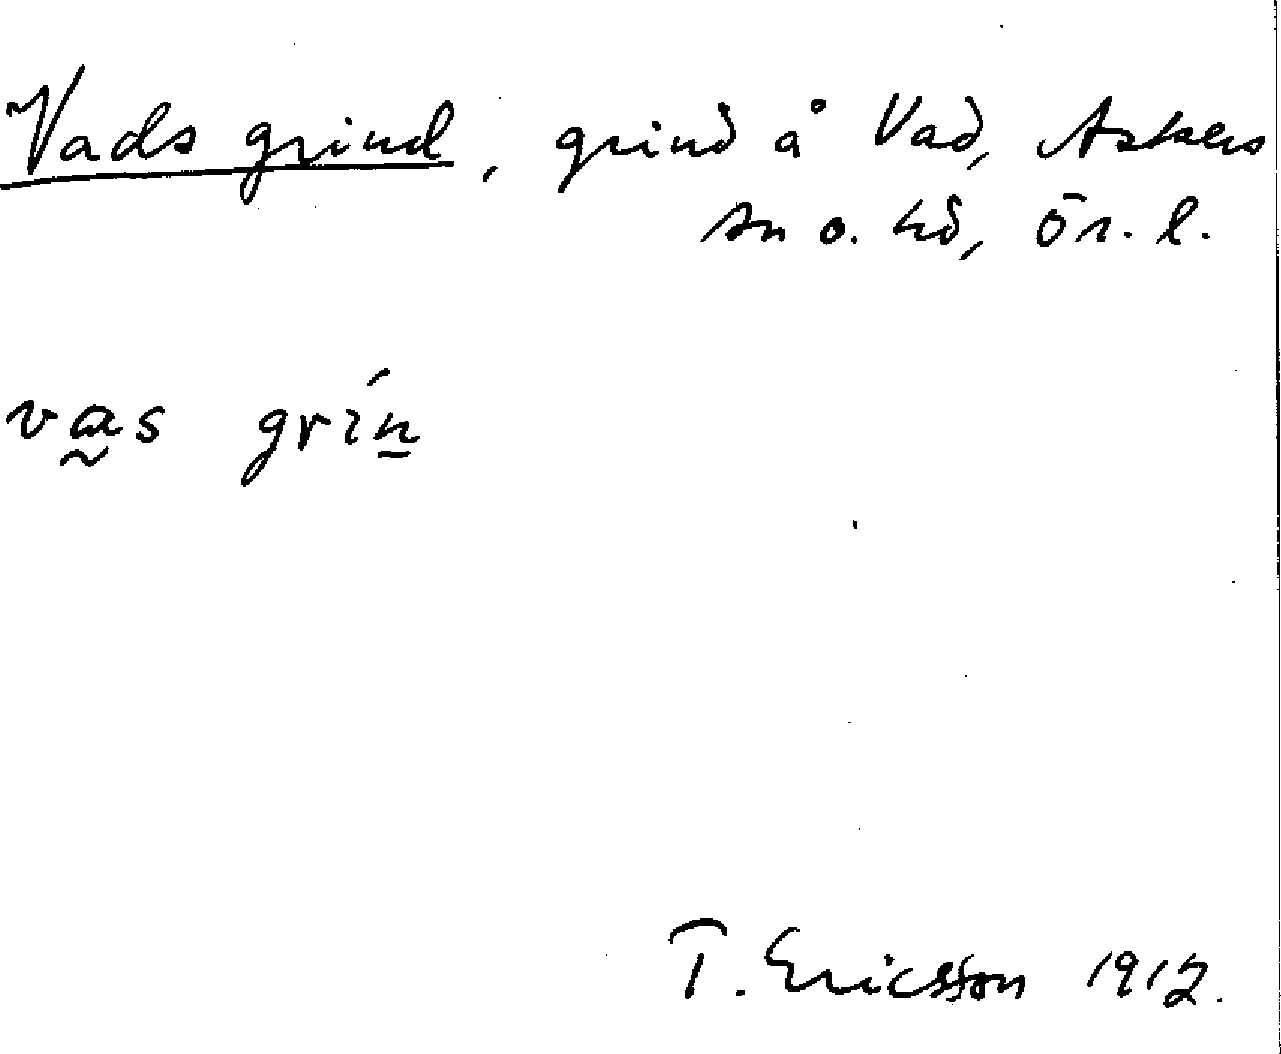 Vads grind, grind å Vad, Askers
sn o. hd, Ör. l.
vas grín
T. Ericsson 1912.